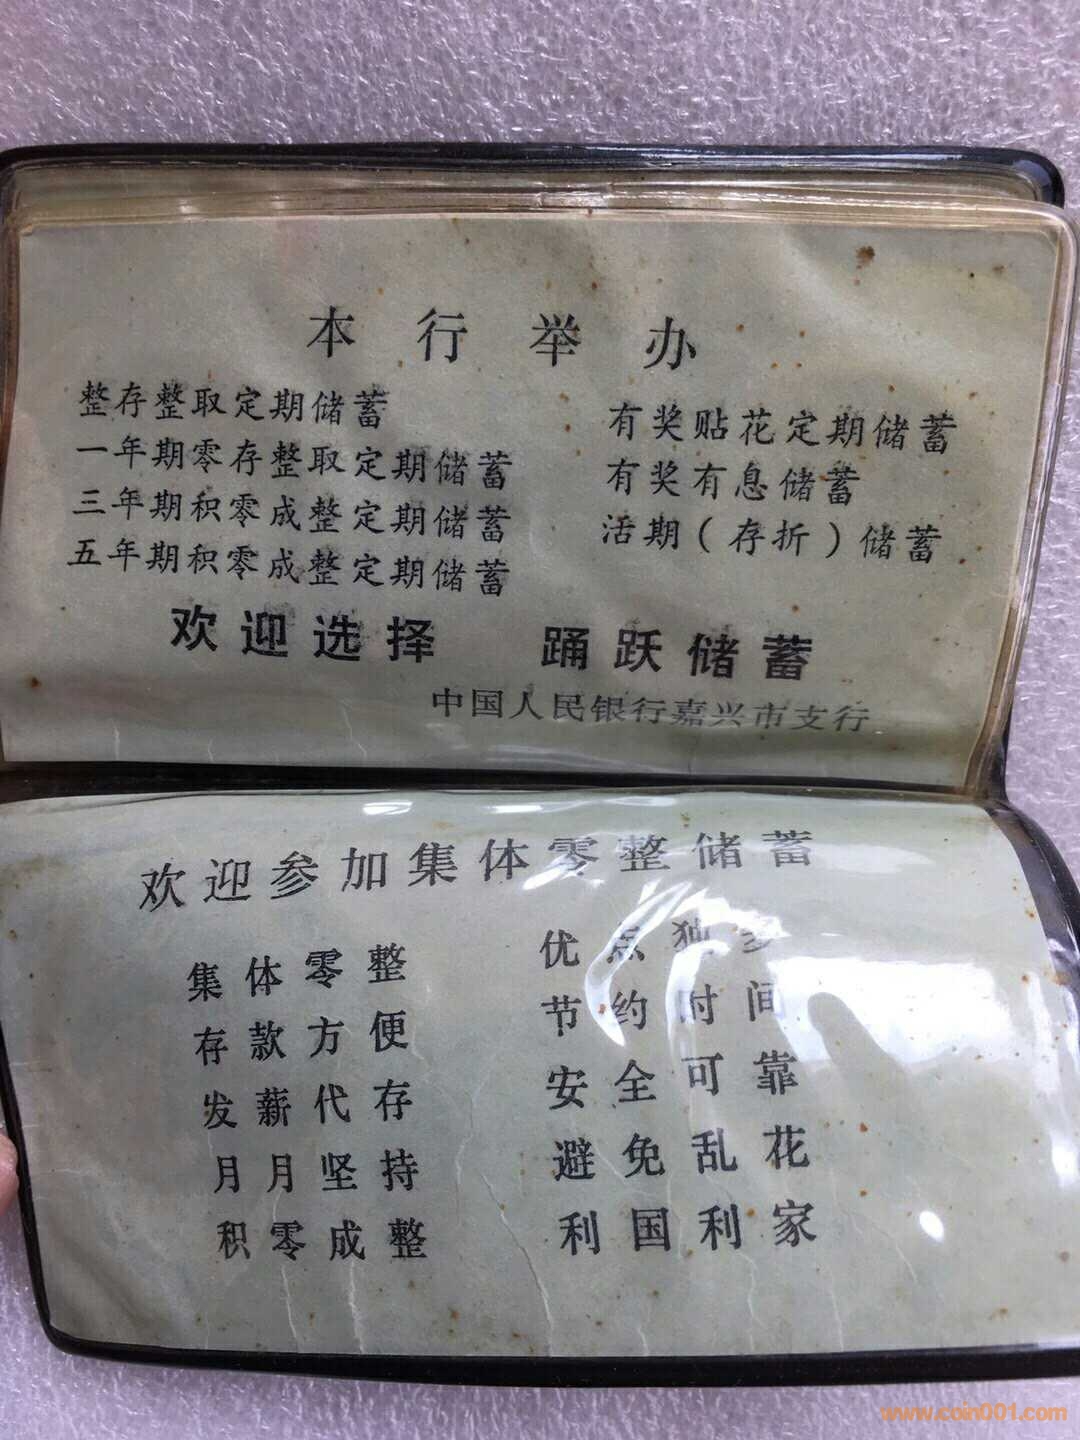 本行举办
整存整取定期储蓄
一年期零存整取定期储蓄
三年期积零成整定期储蓄
五年期积零成整定期储蓄
有奖贴花定期储蓄
有奖有息储蓄
活期(存折)储蓄
欢迎选择 踊跃储蓄
中国人民银行嘉兴市支行
欢迎参加集体零整储蓄
集体零整
存款方便
发薪代存
月月坚持
积零成整
优点独多
节约时间
安全可靠
避免乱花
利国利家
www.coin001.com